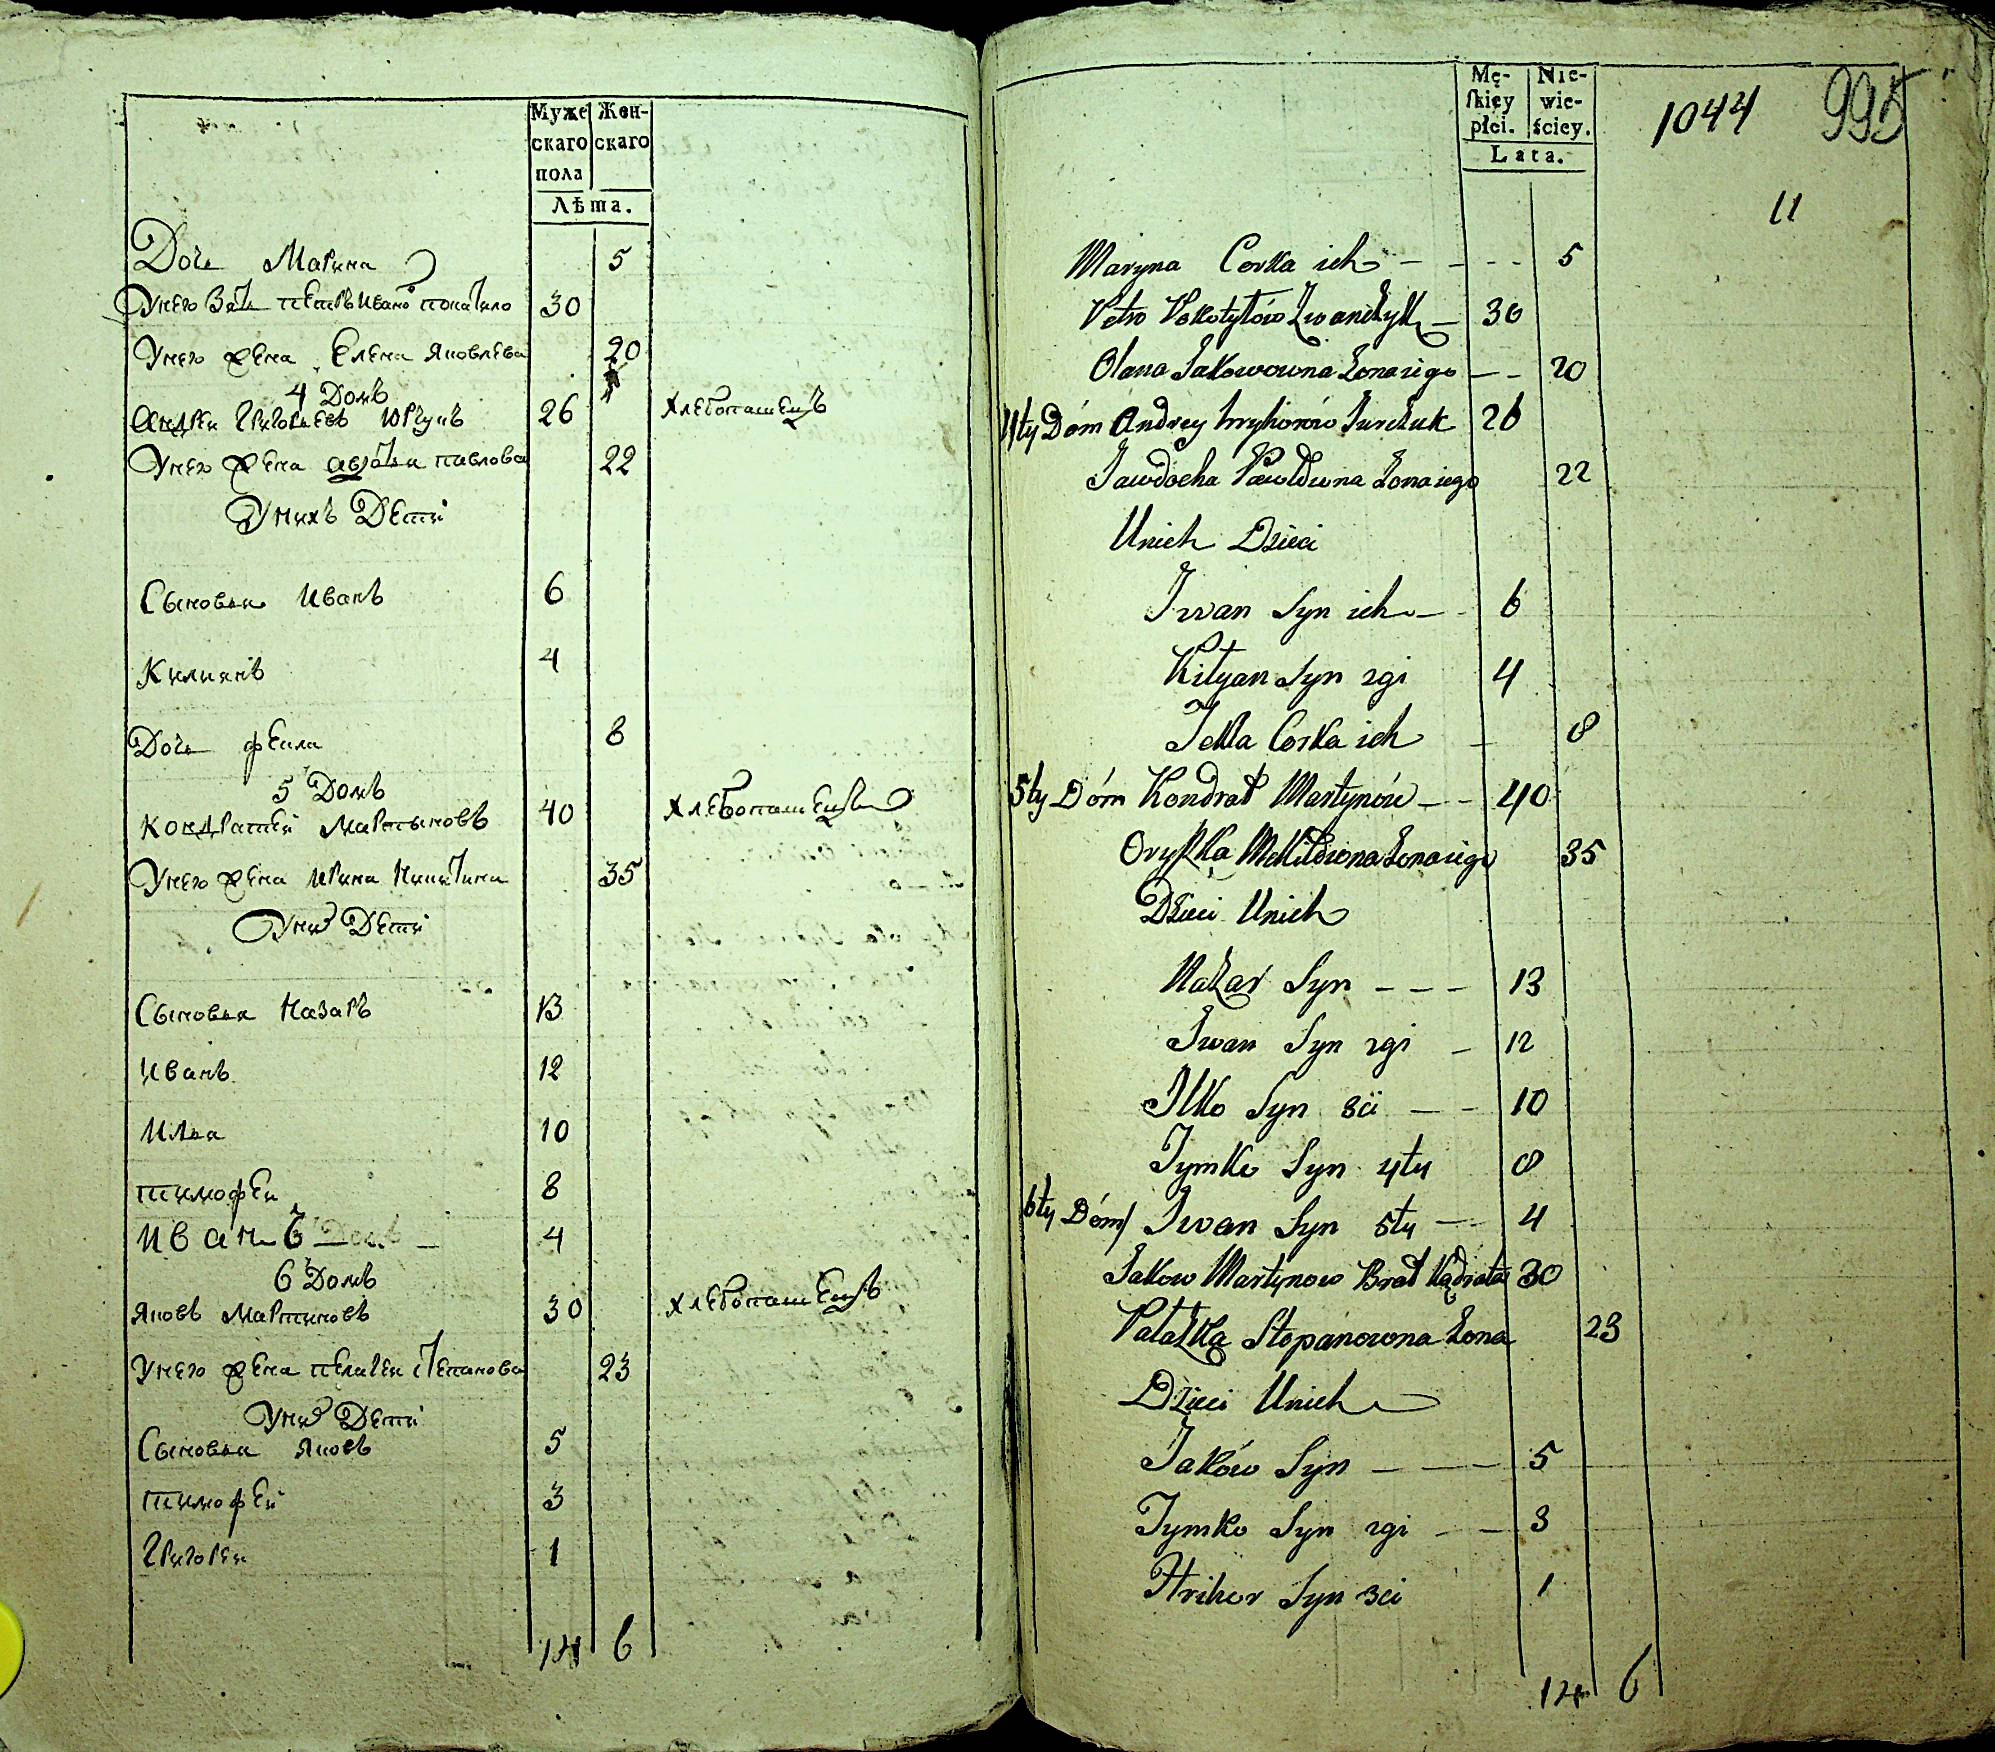 Муже Жен-
скаго скаго
пола
Лѣта.
Дочь Марина 5
Унего Зать петръ Ивано покатило 30
Унего жена Елена Яковлева 20
4 Домъ
Андреи Григорьевъ Юрчукъ 26 Хлебопашецъ
Унего жена авдотьи павлова 22
Унихъ Дети
Сыновья Иванъ 6
Килиянъ 4
Дочь фекла 8
5 Домъ
Кондратеи Мартыновъ 40 Хлебопашецъ
Унего жена Ирина Никитина 35
Уних Дети
Сыновья Назаръ 13
Иванъ 12
Илья 10
тимофеи 8
Иванъ 4
6 Домъ
Яковъ Мартиновъ 30 Хлебопашецъ
Унего жена пелагеи степанова 23
Уних Дети
Сыновья Яковъ 5
тимофеи 3
Григореи 1
14 6
Mę- Nie-
skiey wie-
płci. ściey.
Lata.
1044 995
11
Maryna Corka ich 5
Petro Pokotyłów Zwanczyk 30
Olana Jakowowna Zona iego 20
4ty Dóm Andrey Hryhorów Jurczuk 26
Jawdocha Pawłowna Zona iego 22
Unich Dzieci
Jwan Syn ich 6
Kilyan Syn 2gi 4
Tekla Corka ich 8
5ty Dóm Kondrat Martynów 40
Oryszka Mikitowna Zona iego 35
Dzieci Unich
Nazar Syn 13
Jwan Syn 2gi 12
Ilko Syn 3ci 10
Tymko Syn 4ty 8
6ty Dóm Jwan Syn 5ty 4
Jakow Martynow Brat Kądrata 30
Palazka Stepanowna Zona 23
Dzieci Unich
Jaków Syn 5
Tymko Syn 2gi 3
Hrihor Syn 3ci 1
14 6